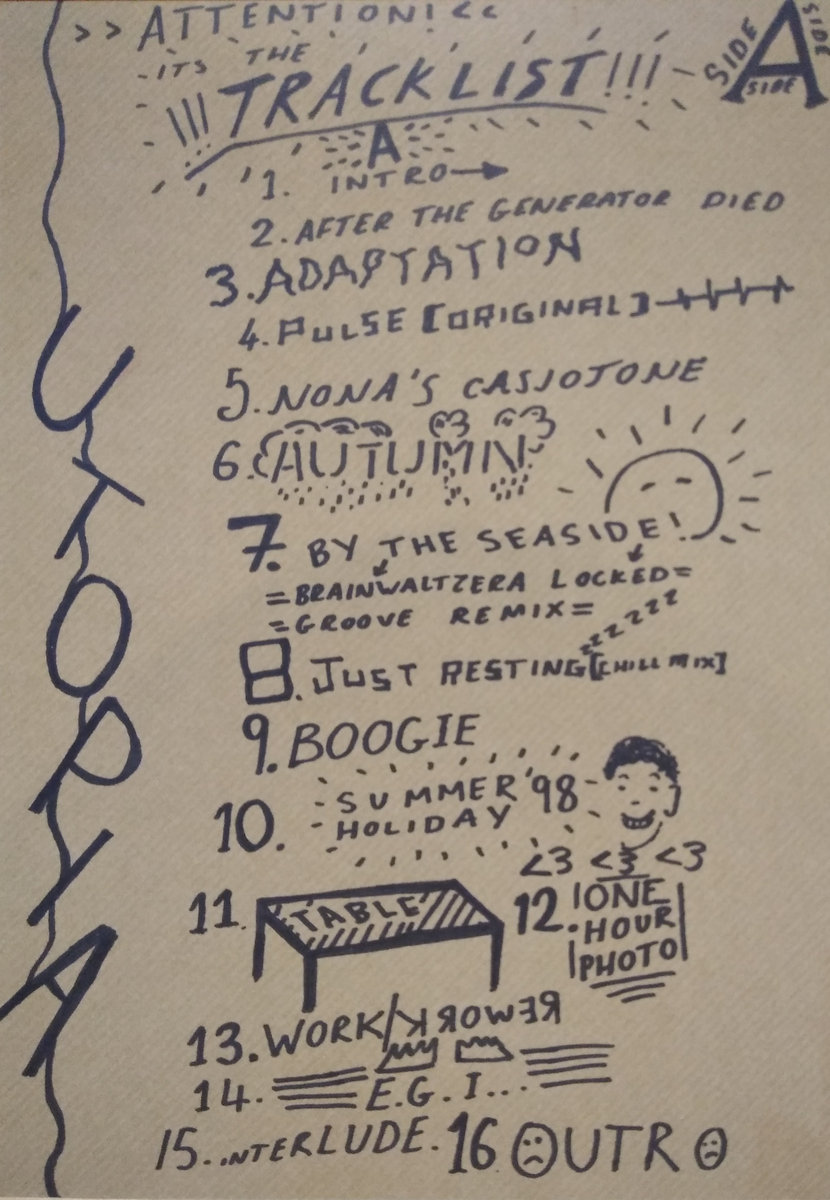 >> ATTENTION! <<
ITS THE
!!! TRACKLIST!!!
SIDE A SIDE SIDE
A
1. INTRO
2. AFTER THE GENERATOR DIED
3. ADAPTATION
4. PULSE [ORIGINAL]
5. NONA'S CASIOTONE
6. AUTUMN
7. BY THE SEASIDE!
=BRAINWALTZERA LOCKED=
=GROOVE REMIX=
zzzzzz
8. JUST RESTING [CHILL MIX]
9. BOOGIE
10. SUMMER '98
HOLIDAY
<3 <3 <3
11. TABLE
12. ONE
HOUR
PHOTO
13. WORK/REWORK
14. E.G. I...
15. INTERLUDE. 16 OUTRO
UTOPIA